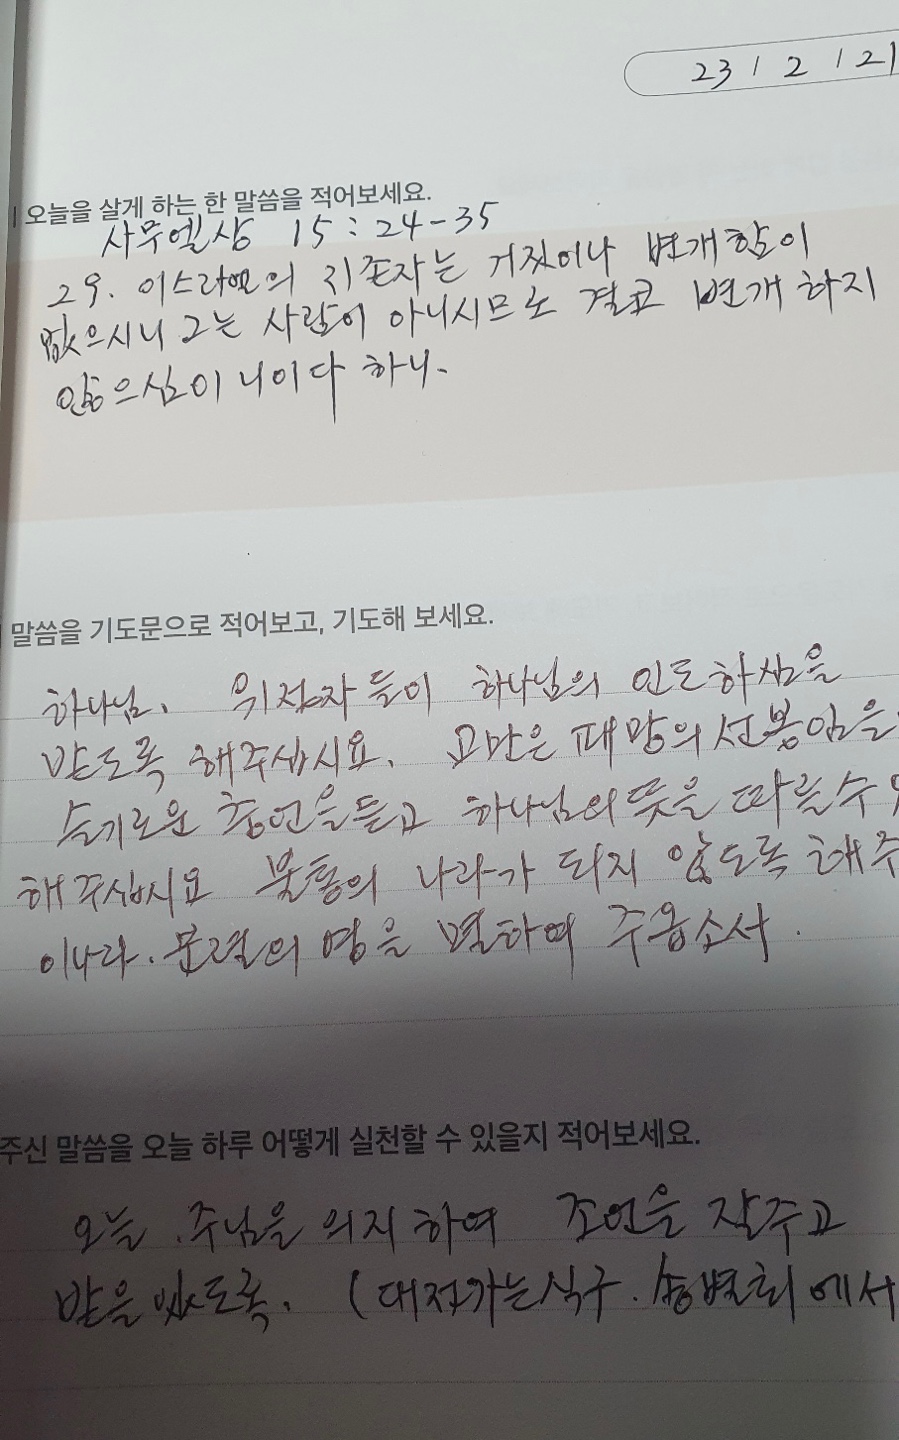 23 / 2 / 21
오늘을 살게 하는 한 말씀을 적어보세요.
사무엘상 15:24-35
29. 이스라엘의 지존자는 거짓이나 변개함이
없으시니 그는 사람이 아니시므로 결코 변개하지
않으심이니이다 하니.
말씀을 기도문으로 적어보고, 기도해 보세요.
하나님. 위정자들이 하나님의 인도하심을
받도록 해주십시요. 교만은 패망의 선봉임을
슬기로운 충언을 듣고 하나님의 뜻을 따를수
해주십시요 불통의 나라가 되지 않도록 해주
이나라. 분열의 영을 멸하여 주옵소서.
주신 말씀을 오늘 하루 어떻게 실천할 수 있을지 적어보세요.
오늘. 주님을 의지하여 조언을 잘주고
받을 있도록. (대전가는식구. 송별회에서